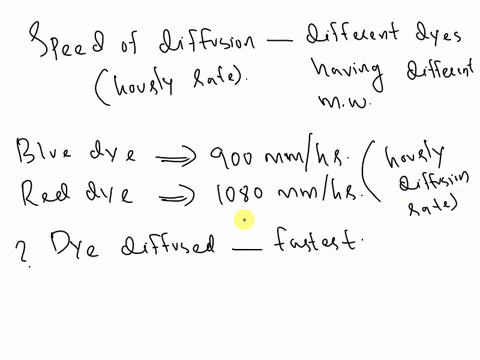 Speed of diffusion — different dyes
(hourly rate). having different
m.w.
Blue dye ⇒ 900 mm/hr. (hourly
Red dye ⇒ 1080 mm/hr. diffusion
rate)
? Dye diffused — fastest.